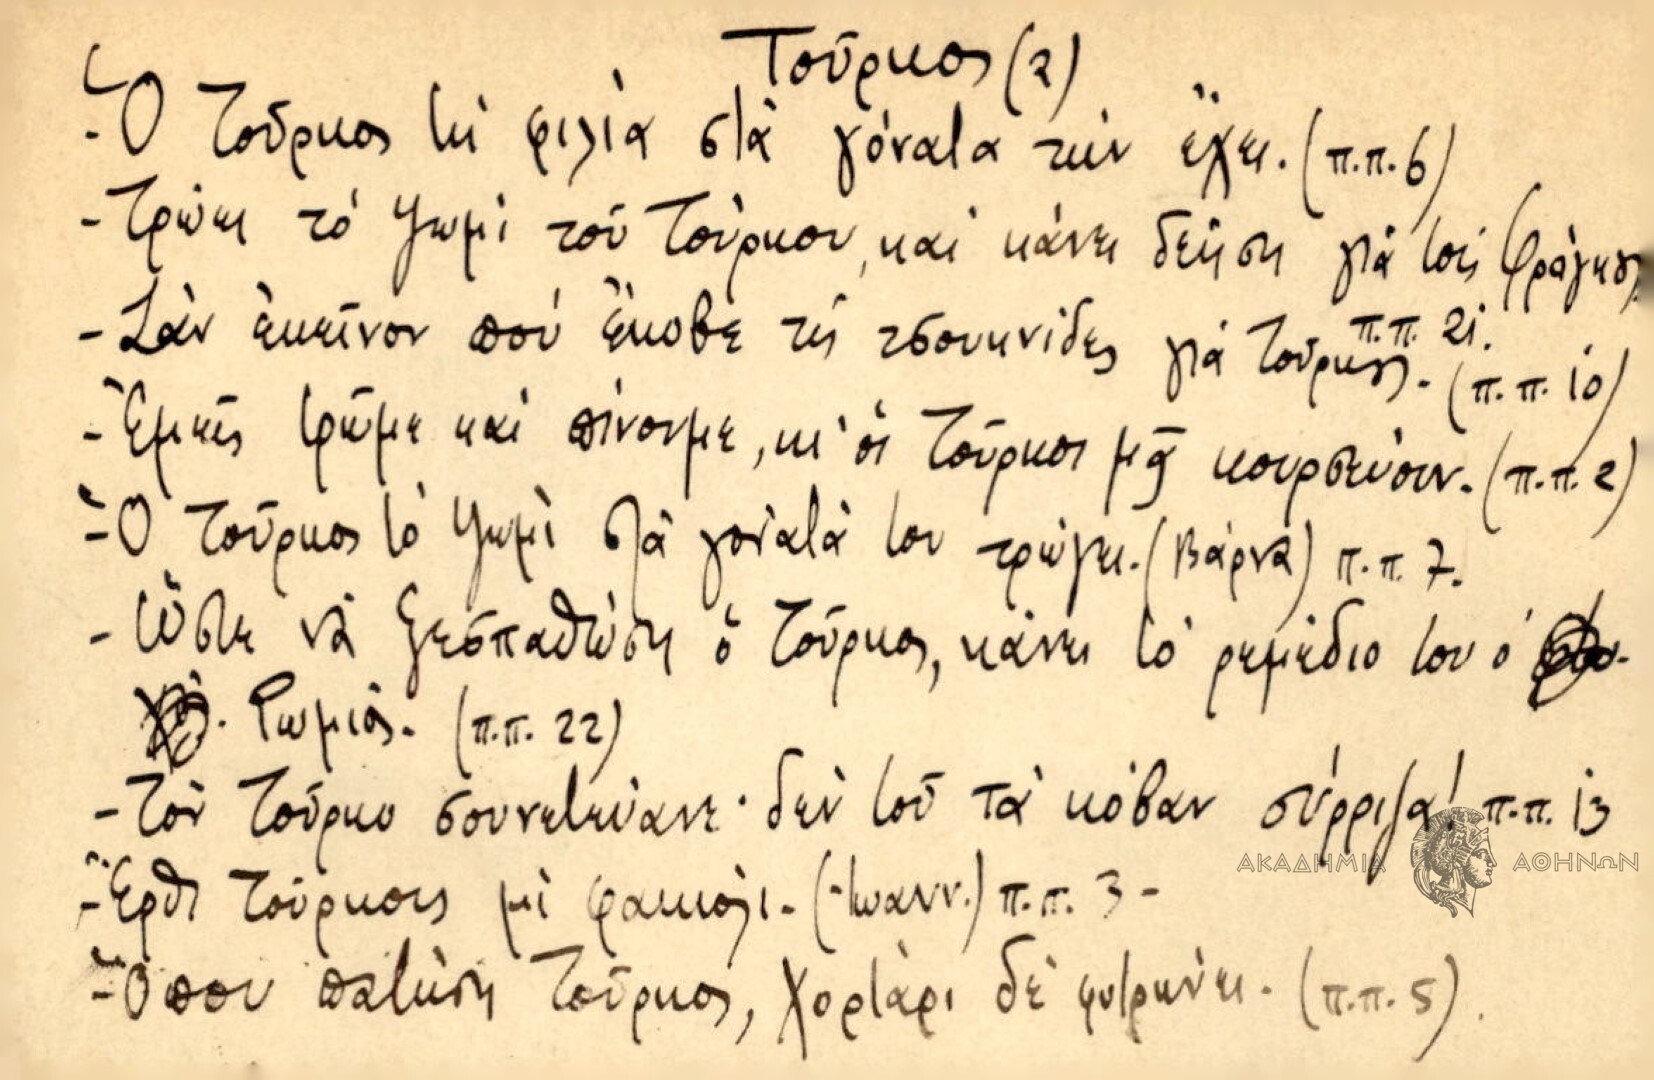 Τοῦρκος (2)
- Ὁ Τοῦρκος τὴ φιλία στὰ γόνατα τὴν ἔχει. (π.π. 6)
- Τρώει τὸ ψωμὶ τοῦ Τούρκου, καὶ κάνει δέηση γιὰ τοὺς Φράγκους.
π.π. 21.
- Σὰν ἐκεῖνον ποὺ ἔκοβε τὶς τσουκνίδες γιὰ Τούρκους. (π.π. 10)
- Ἐμεῖς τρῶμε καὶ πίνουμε, κι' οἱ Τοῦρκοι μᾶς κουρσεύουν. (π.π. 2)
- Ὁ Τοῦρκος τὸ ψωμὶ στὰ γόνατά του τρώγει. (Βάρνα) π.π. 7.
- Ὥστε νὰ ξεσπαθώση ὁ Τοῦρκος, κάνει τὸ ρεμέδιο του ὁ
Ρωμιός. (π.π. 22)
- Τὸν Τοῦρκο σουνετεύανε· δὲν τοῦ τὰ κόβαν σύρριζα! π.π. 13
- Ἔρθε Τοῦρκους μὶ φακιόλι. (Ἰωανν.) π.π. 3 -
- Ὅπου πατήση Τοῦρκος, χορτάρι δὲ φυτρώνει. (π.π. 5).
ΑΚΑΔΗΜΙΑ ΑΘΗΝΩΝ